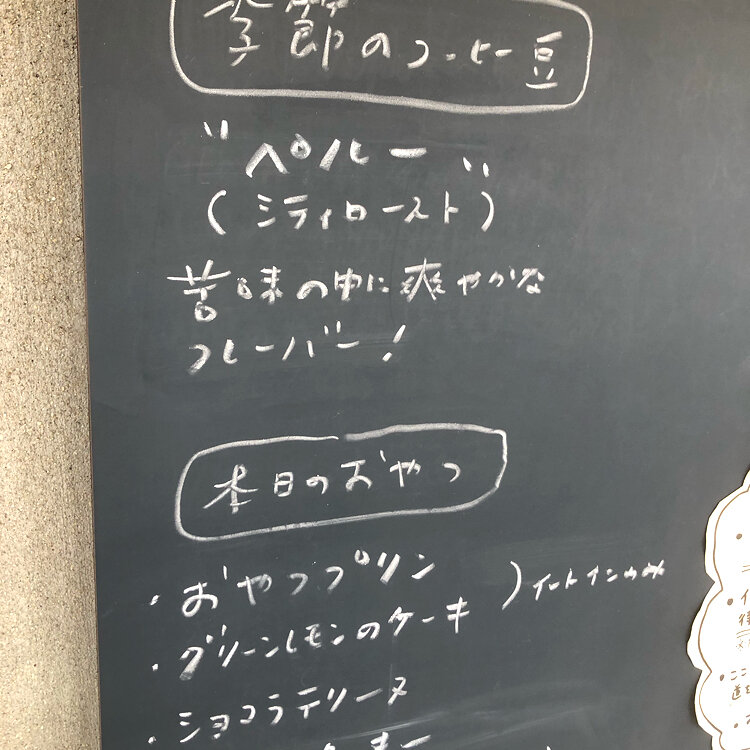 季節のコーヒー豆
"ペルー"
(シティロースト)
苦味の中に爽やかな
フレーバー!
本日のおやつ
・おやつプリン
・グリーンレモンのケーキ
)イートインのみ
・ショコラテリーヌ